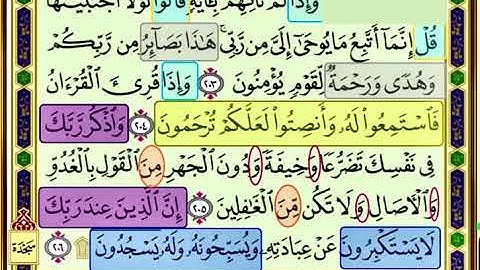 وَإِذَا لَمْ تَأْتِهِم بِـَٔايَةٍ قَالُوا۟ لَوْلَا ٱجْتَبَيْتَهَا
قُلْ إِنَّمَآ أَتَّبِعُ مَا يُوحَىٰٓ إِلَىَّ مِن رَّبِّى ۚ هَـٰذَا بَصَآئِرُ مِن رَّبِّكُمْ
وَهُدًى وَرَحْمَةٌ لِّقَوْمٍ يُؤْمِنُونَ ٢٠٣ وَإِذَا قُرِئَ ٱلْقُرْءَانُ
فَٱسْتَمِعُوا۟ لَهُۥ وَأَنصِتُوا۟ لَعَلَّكُمْ تُرْحَمُونَ ٢٠٤ وَٱذْكُر رَّبَّكَ
فِى نَفْسِكَ تَضَرُّعًا وَخِيفَةً وَدُونَ ٱلْجَهْرِ مِنَ ٱلْقَوْلِ بِٱلْغُدُوِّ
وَٱلْـَٔاصَالِ وَلَا تَكُن مِّنَ ٱلْغَـٰفِلِينَ ٢٠٥ إِنَّ ٱلَّذِينَ عِندَ رَبِّكَ
لَا يَسْتَكْبِرُونَ عَنْ عِبَادَتِهِۦ وَيُسَبِّحُونَهُۥ وَلَهُۥ يَسْجُدُونَ ۩ ٢٠٦
سَجْدَة